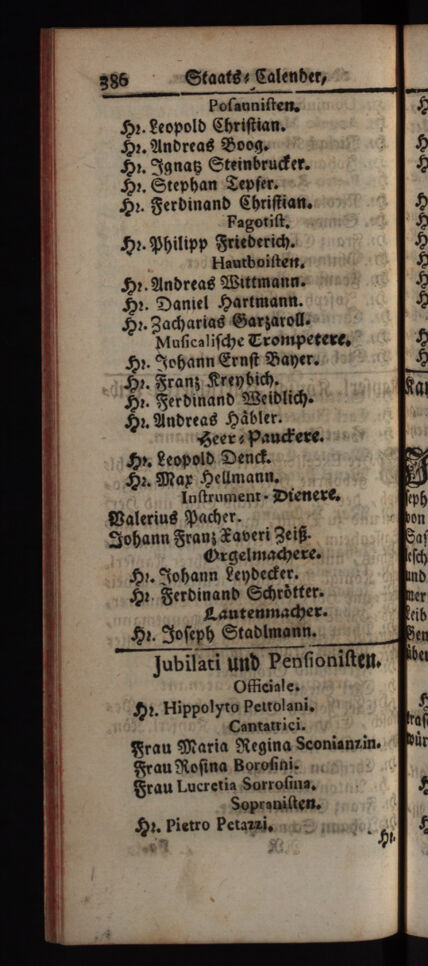 386 Staats-Calender,
Posaunisten.
Hr. Leopold Christian.
Hr. Andreas Boog.
Hr. Ignatz Steinbrucker.
Hr. Stephan Tepser.
Hr. Ferdinand Christian.
Fagotist.
Hr. Philipp Friederich.
Hautboisten.
Hr. Andreas Wittmann.
Hr. Daniel Hartmann.
Hr. Zacharias Garzaroll.
Musicalische Trompetere.
Hr. Johann Ernst Bayer.
Hr. Franz Kreybich.
Hr. Ferdinand Weidlich.
Hr. Andreas Häbler.
Heer-Pauckere.
Hr. Leopold Denck.
Hr. Max Hellmann.
Instrument-Dienere.
Valerius Pacher.
Johann Franz Xaveri Zeiß.
Orgelmachere.
Hr. Johann Leydecker.
Hr. Ferdinand Schrötter.
Lautenmacher.
Hr. Joseph Stadlmann.
Jubilati und Pensionisten.
Officiale.
Hr. Hippolyto Pettolani.
Cantatrici.
Frau Maria Regina Sconianzin.
Frau Rosina Borosini.
Frau Lucretia Sorrosina.
Sopranisten.
Hr. Pietro Petazzi.
Hr.